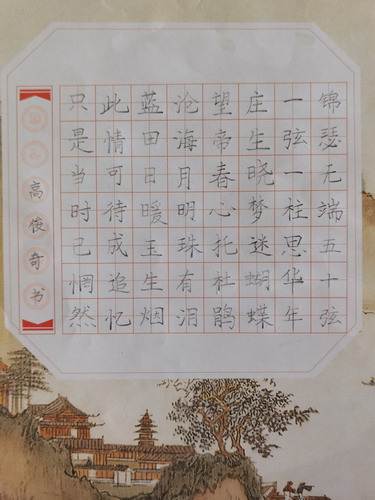 锦瑟无端五十弦
一弦一柱思华年
庄生晓梦迷蝴蝶
望帝春心托杜鹃
沧海月明珠有泪
蓝田日暖玉生烟
此情可待成追忆
只是当时已惘然
高俊奇书